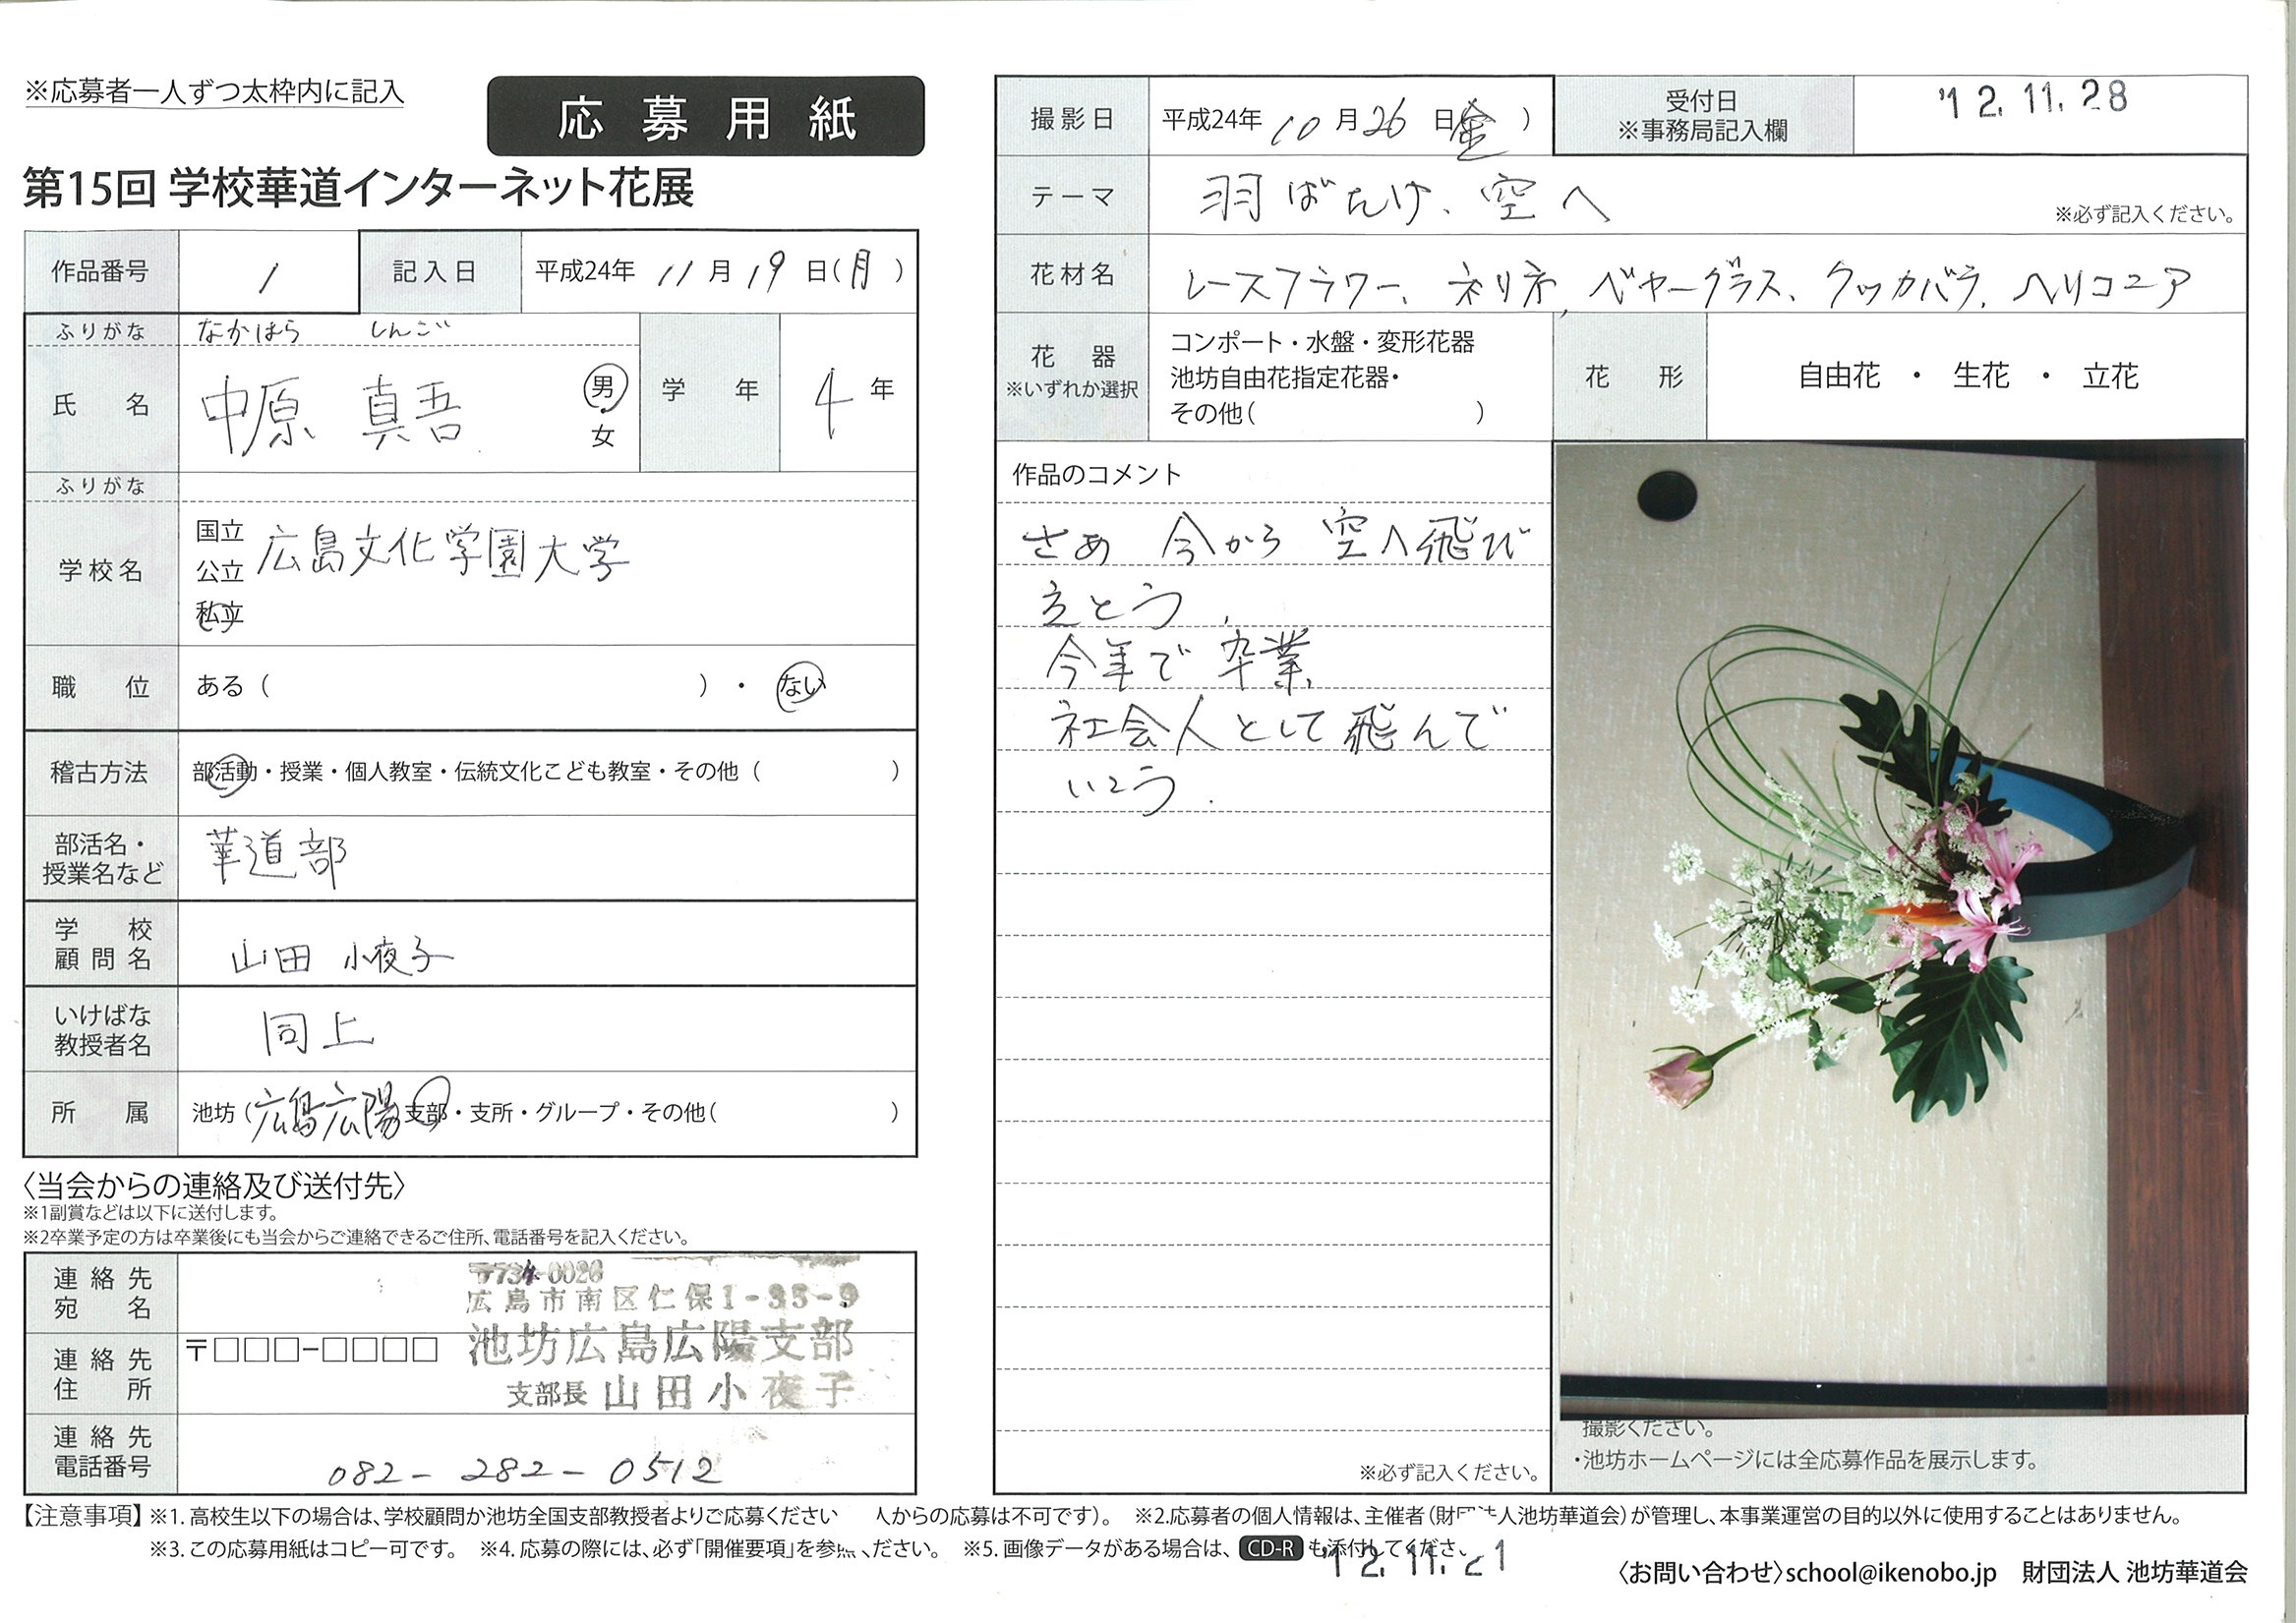 ※応募者一人ずつ太枠内に記入
応募用紙
第15回 学校華道インターネット花展
作品番号 1 記入日 平成24年 11月 19日(月)
ふりがな なかはら しんご
氏名 中原 真吾 男・女 学年 4年
ふりがな
学校名 国立 公立 私立 広島文化学園大学
職位 ある( )・ない
稽古方法 部活動・授業・個人教室・伝統文化こども教室・その他( )
部活名・授業名など 華道部
学校顧問名 山田 小夜子
いけばな教授者名 同上
所属 池坊(広島広陽 支部・支所・グループ・その他( )
〈当会からの連絡及び送付先〉
※1副賞などは以下に送付します。
※2卒業予定の方は卒業後にも当会からご連絡できるご住所、電話番号を記入ください。
連絡先宛名
〒734-0026
広島市南区仁保1-35-9
連絡先住所 〒□□□-□□□□
池坊広島広陽支部
支部長 山田小夜子
連絡先電話番号 082-282-0512
撮影日 平成24年 10月 26日(金)
受付日 ※事務局記入欄 '12.11.28
テーマ 羽ばたけ、空へ ※必ず記入ください。
花材名 レースフラワー、ネリネ、ベヤーグラス、クッカバラ、ヘリコニア
花器 ※いずれか選択 コンポート・水盤・変形花器
池坊自由花指定花器・
その他( )
花形 自由花 ・ 生花 ・ 立花
作品のコメント
さあ 今から 空へ飛び
立とう.
今年で 卒業
社会人として飛んで
いこう.
※必ず記入ください。
撮影ください。
・池坊ホームページには全応募作品を展示します。
【注意事項】※1. 高校生以下の場合は、学校顧問か池坊全国支部教授者よりご応募ください 人からの応募は不可です)。 ※2.応募者の個人情報は、主催者(財 法人池坊華道会)が管理し、本事業運営の目的以外に使用することはありません。
※3. この応募用紙はコピー可です。 ※4. 応募の際には、必ず「開催要項」を参 ください。 ※5. 画像データがある場合は、CD-Rも添付してくださ
'12.11.21
〈お問い合わせ〉school@ikenobo.jp 財団法人 池坊華道会